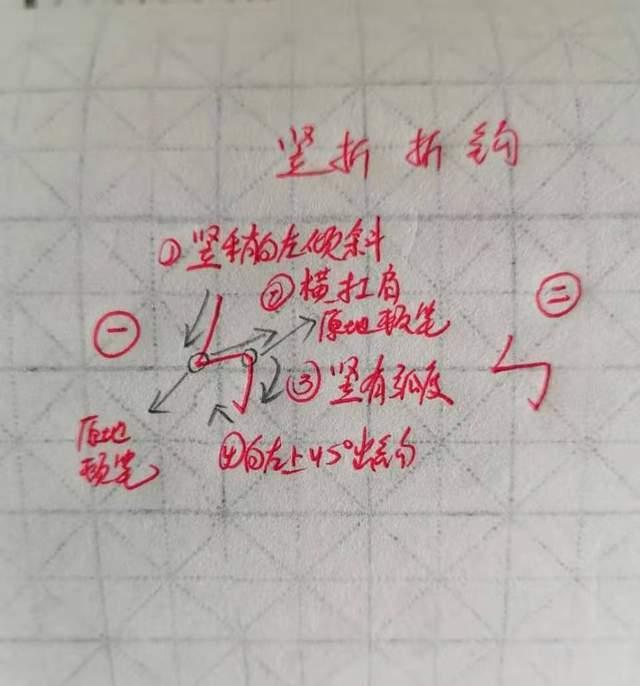 竖折折钩
①竖稍向左倾斜
②横扛肩
㊀
㊁
原地顿笔
③竖有弧度
原地
顿笔
④向左上45°出钩